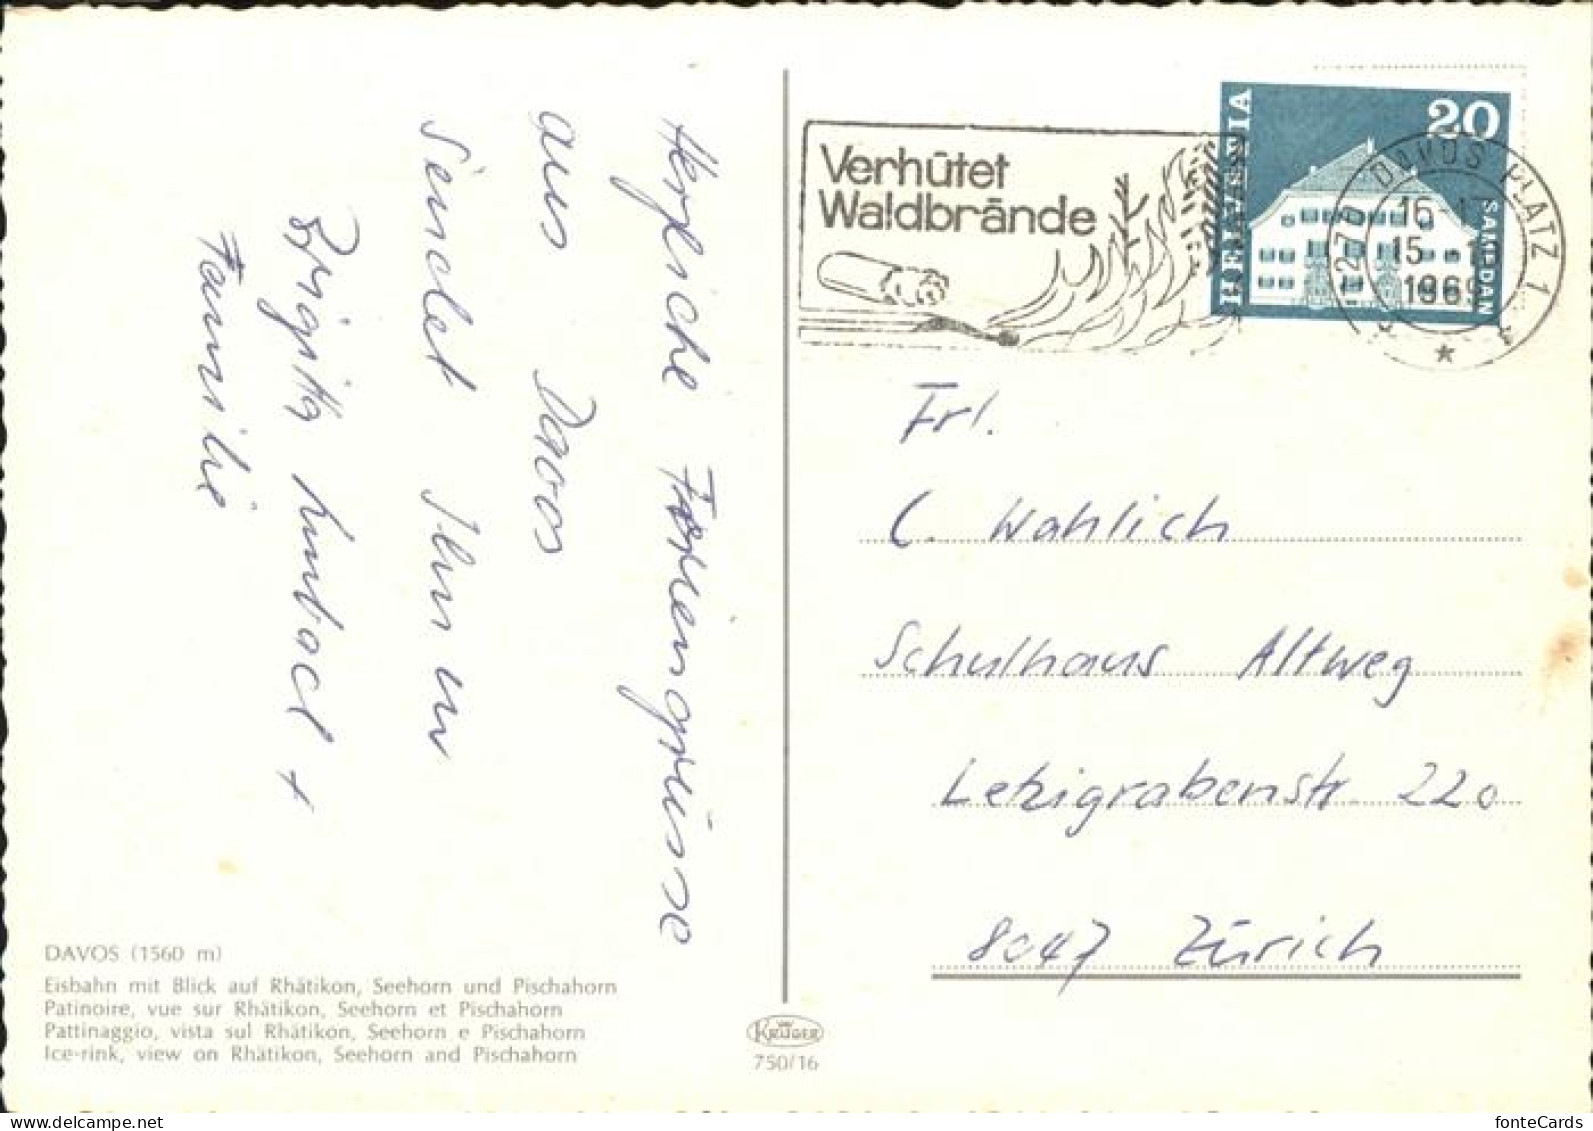 Herzliche Feriengrüsse
aus Davos
sendet Ihnen
Brigitte +
Familie
DAVOS (1560 m)
Eisbahn mit Blick auf Rhätikon, Seehorn und Pischahorn
Patinoire, vue sur Rhätikon, Seehorn et Pischahorn
Pattinaggio, vista sul Rhätikon, Seehorn e Pischahorn
Ice-rink, view on Rhätikon, Seehorn and Pischahorn
KRÜGER
750/16
Verhütet
Waldbrände
HELVETIA
20
SAMEDAN
7270 DAVOS PLATZ 1
15
1969
Frl.
C. Wahlich
Schulhaus Altweg
Letzigrabenstr 220
8047 Zürich
fonteCards